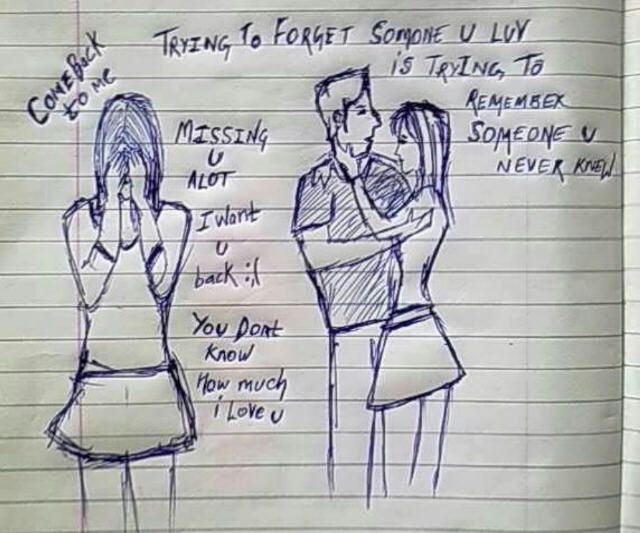 COME BACK
to me
TRYING TO FORGET SOMONE U LUV
is TRYING TO
REMEMBER
SOMEONE U
NEVER KNEW
MISSING
U
ALOT
I Want
U
back :(
YOU DONt
KNOW
How much
i Love u